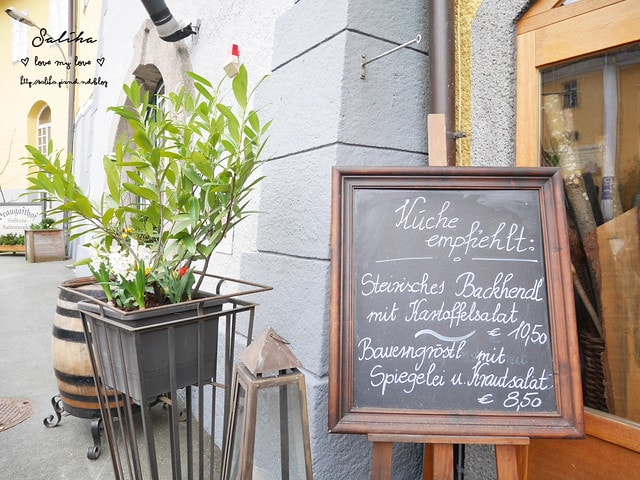 Saliha
♡ love my love ♡
http://saliha.pixnet.net/blog
Küche
empfiehlt:
Steirisches Backhendl
mit Kartoffelsalat
€ 10,50
Bauerngröstl mit
Spiegelei u. Krautsalat
€ 8,50